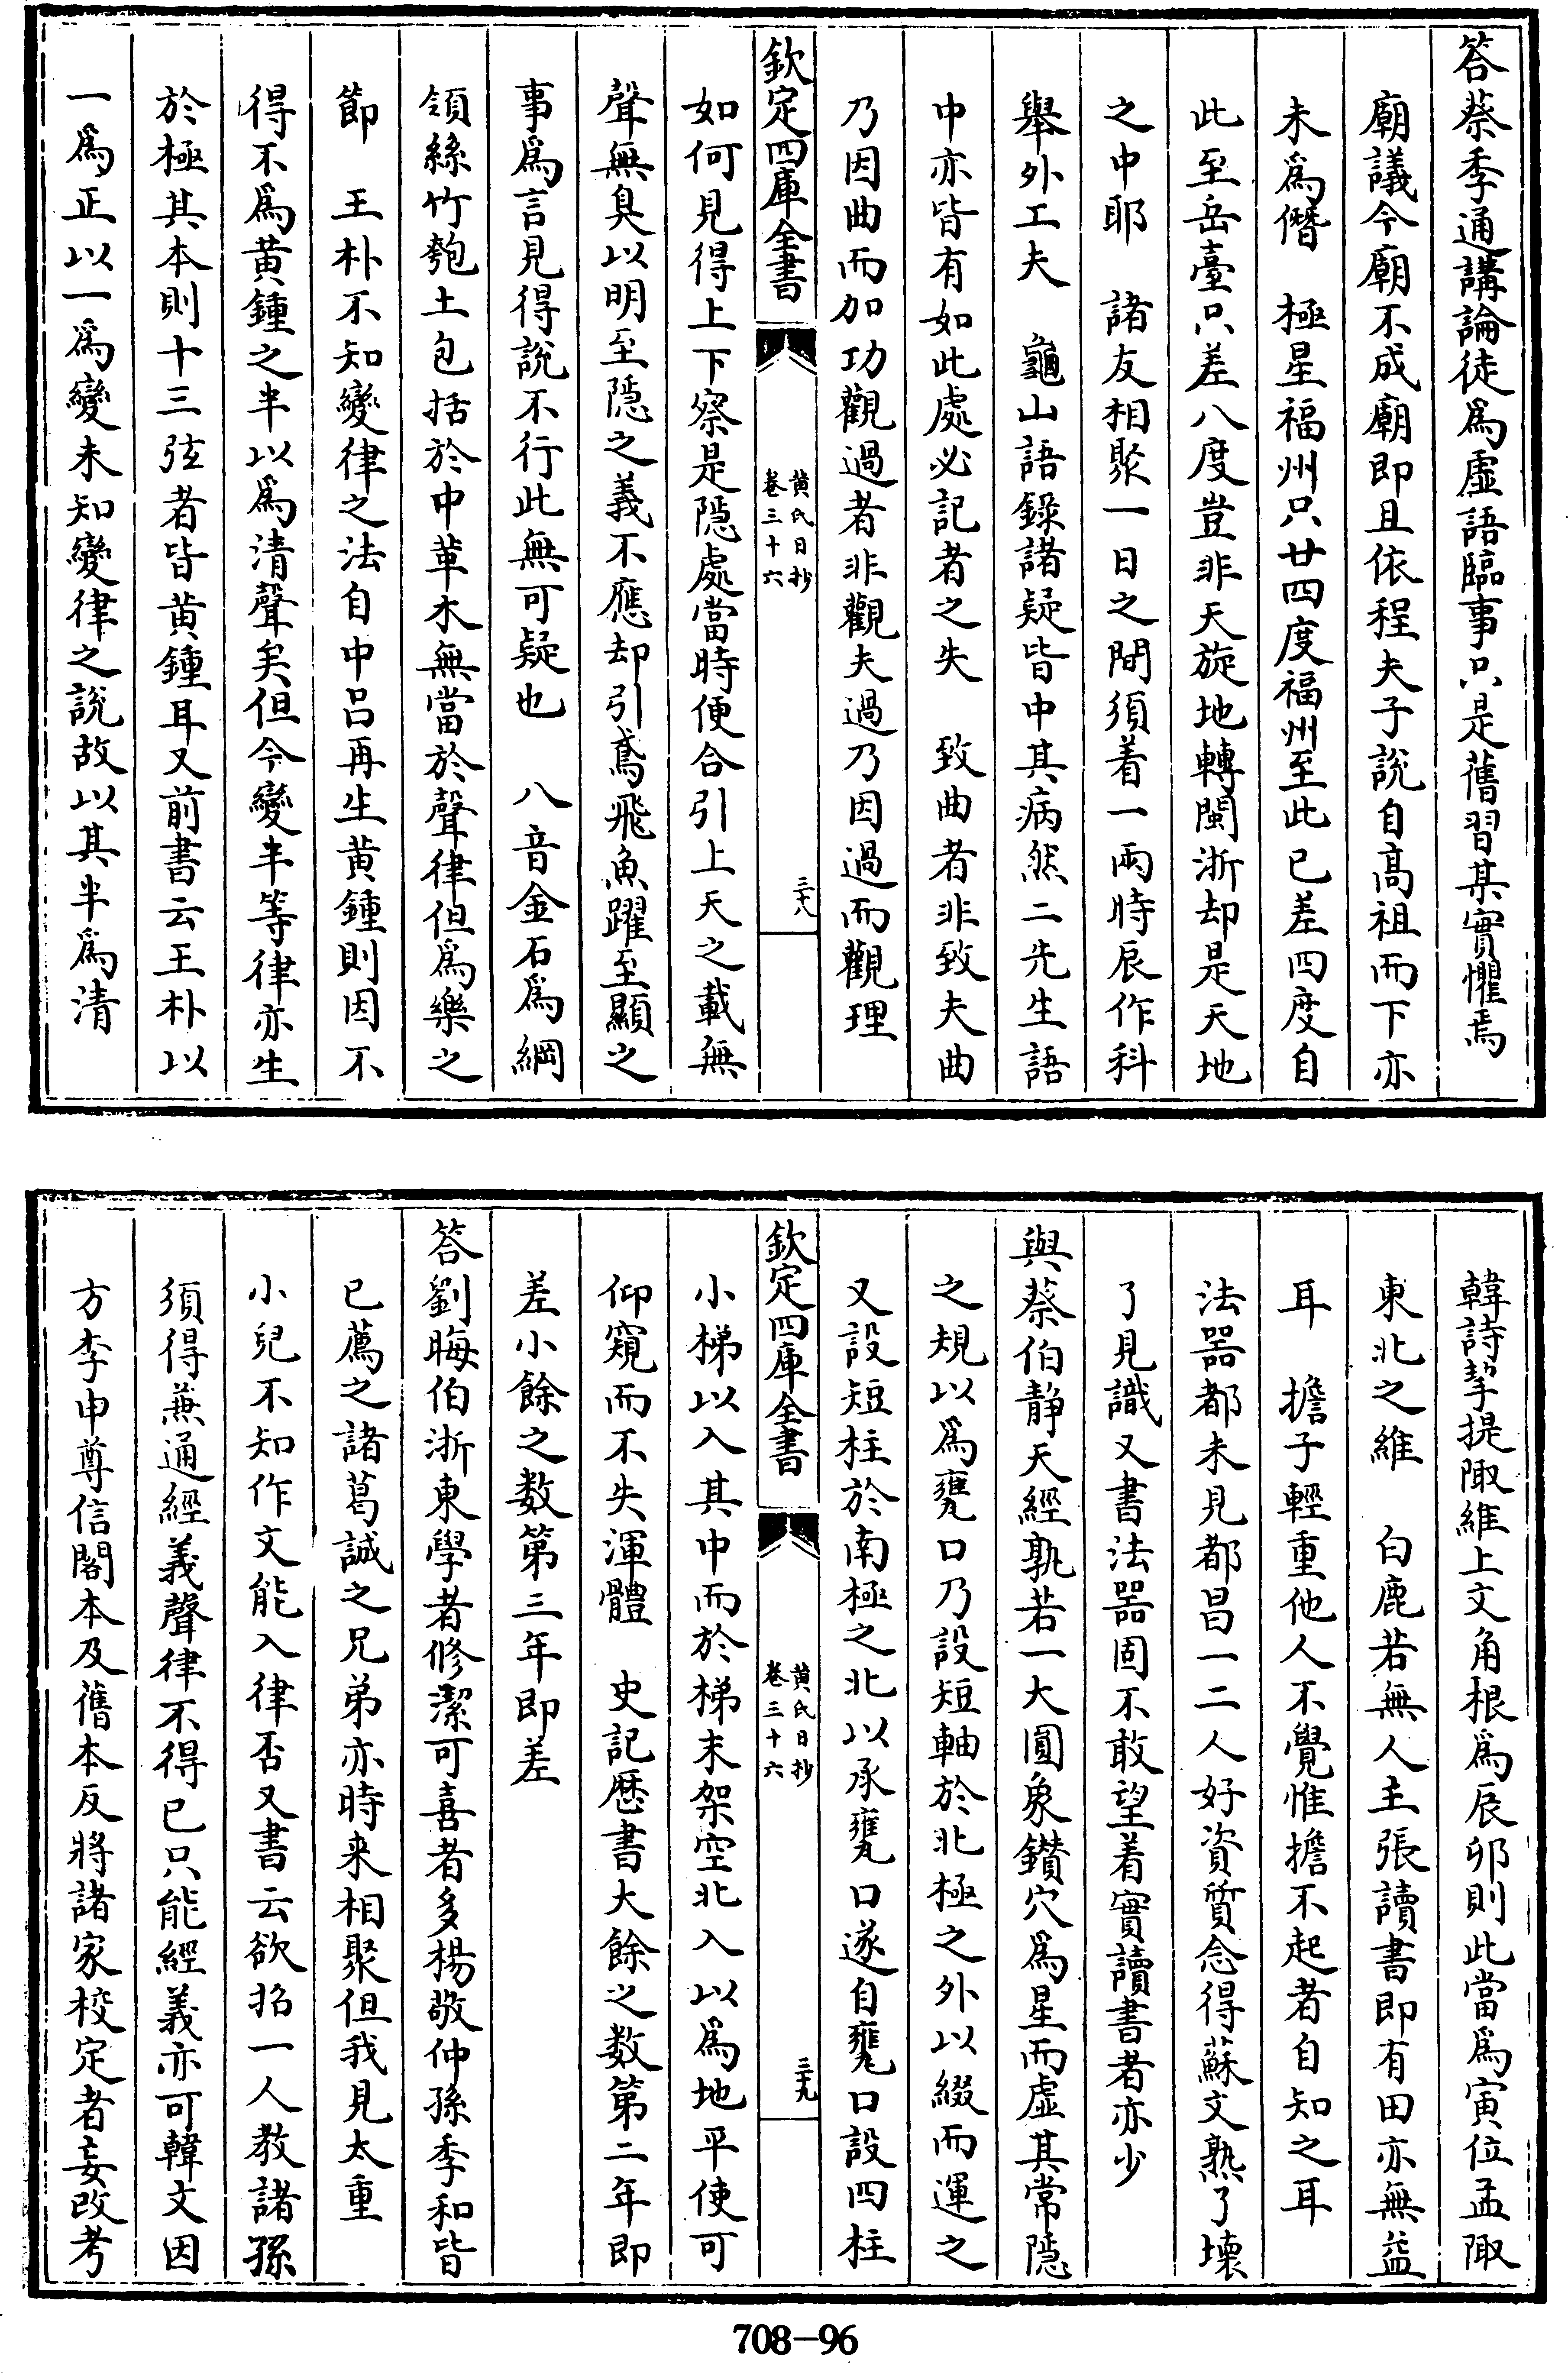 答蔡季通講論徒爲虛語臨事只是舊習某實懼焉
廟議今廟不成廟即且依程夫子說自高祖而下亦
未爲僭　極星福州只廿四度福州至此已差四度自
此至岳臺只差八度豈非天旋地轉閩浙却是天地
之中耶　諸友相聚一日之間須着一兩時辰作科
舉外工夫　龜山語錄諸疑皆中其病然二先生語
中亦皆有如此處必記者之失　致曲者非致夫曲
乃因曲而加功觀過者非觀夫過乃因過而觀理
欽定四庫全書
黃氏日抄
卷三十六
三十八
如何見得上下察是隱處當時便合引上天之載無
聲無臭以明至隱之義不應却引鳶飛魚躍至顯之
事爲言見得說不行此無可疑也　八音金石爲綱
領絲竹匏土包括於中革木無當於聲律但爲樂之
節　王朴不知變律之法自中呂再生黃鍾則因不
得不爲黃鍾之半以爲清聲矣但今變半等律亦生
於極其本則十三弦者皆黃鍾耳又前書云王朴以
一爲正以一爲變未知變律之說故以其半爲清
韓詩挈提陬維上文角根爲辰卯則此當爲寅位孟陬
東北之維　白鹿若無人主張讀書即有田亦無益
耳　擔子輕重他人不覺惟擔不起者自知之耳
法器都未見都昌一二人好資質念得蘇文熟了壞
了見識又書法器固不敢望着實讀書者亦少
與蔡伯静天經孰若一大圓象鑽穴爲星而虛其常隱
之規以爲甕口乃設短軸於北極之外以綴而運之
又設短柱於南極之北以承甕口遂自甕口設四柱
欽定四庫全書
黃氏日抄
卷三十六
三十九
小梯以入其中而於梯末架空北入以爲地平使可
仰窺而不失渾體　史記歷書大餘之数第二年即
差小餘之数第三年即差
答劉晦伯浙東學者修潔可喜者多楊敬仲孫季和皆
已薦之諸葛誠之兄弟亦時来相聚但我見太重
小兒不知作文能入律否又書云欲招一人教諸孫
須得兼通經義聲律不得已只能經義亦可韓文因
方李申尊信閣本及舊本反將諸家校定者妄改考
708-96